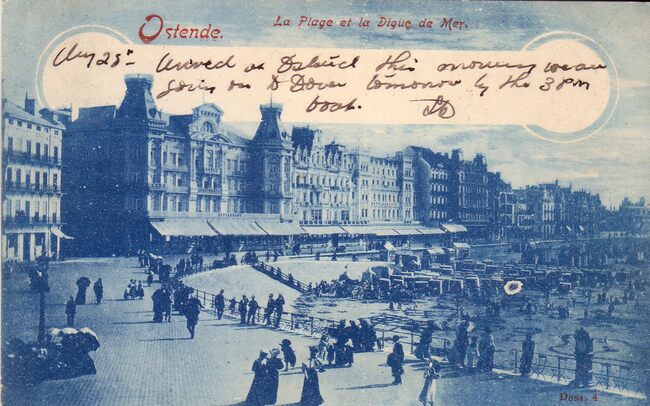 Ostende.
La Plage et la Digue de Mer.
Aug 25th Arrived at Ostend this morning we are
going on to Dover tomorrow by the 3 pm
boat.
Doss. 4